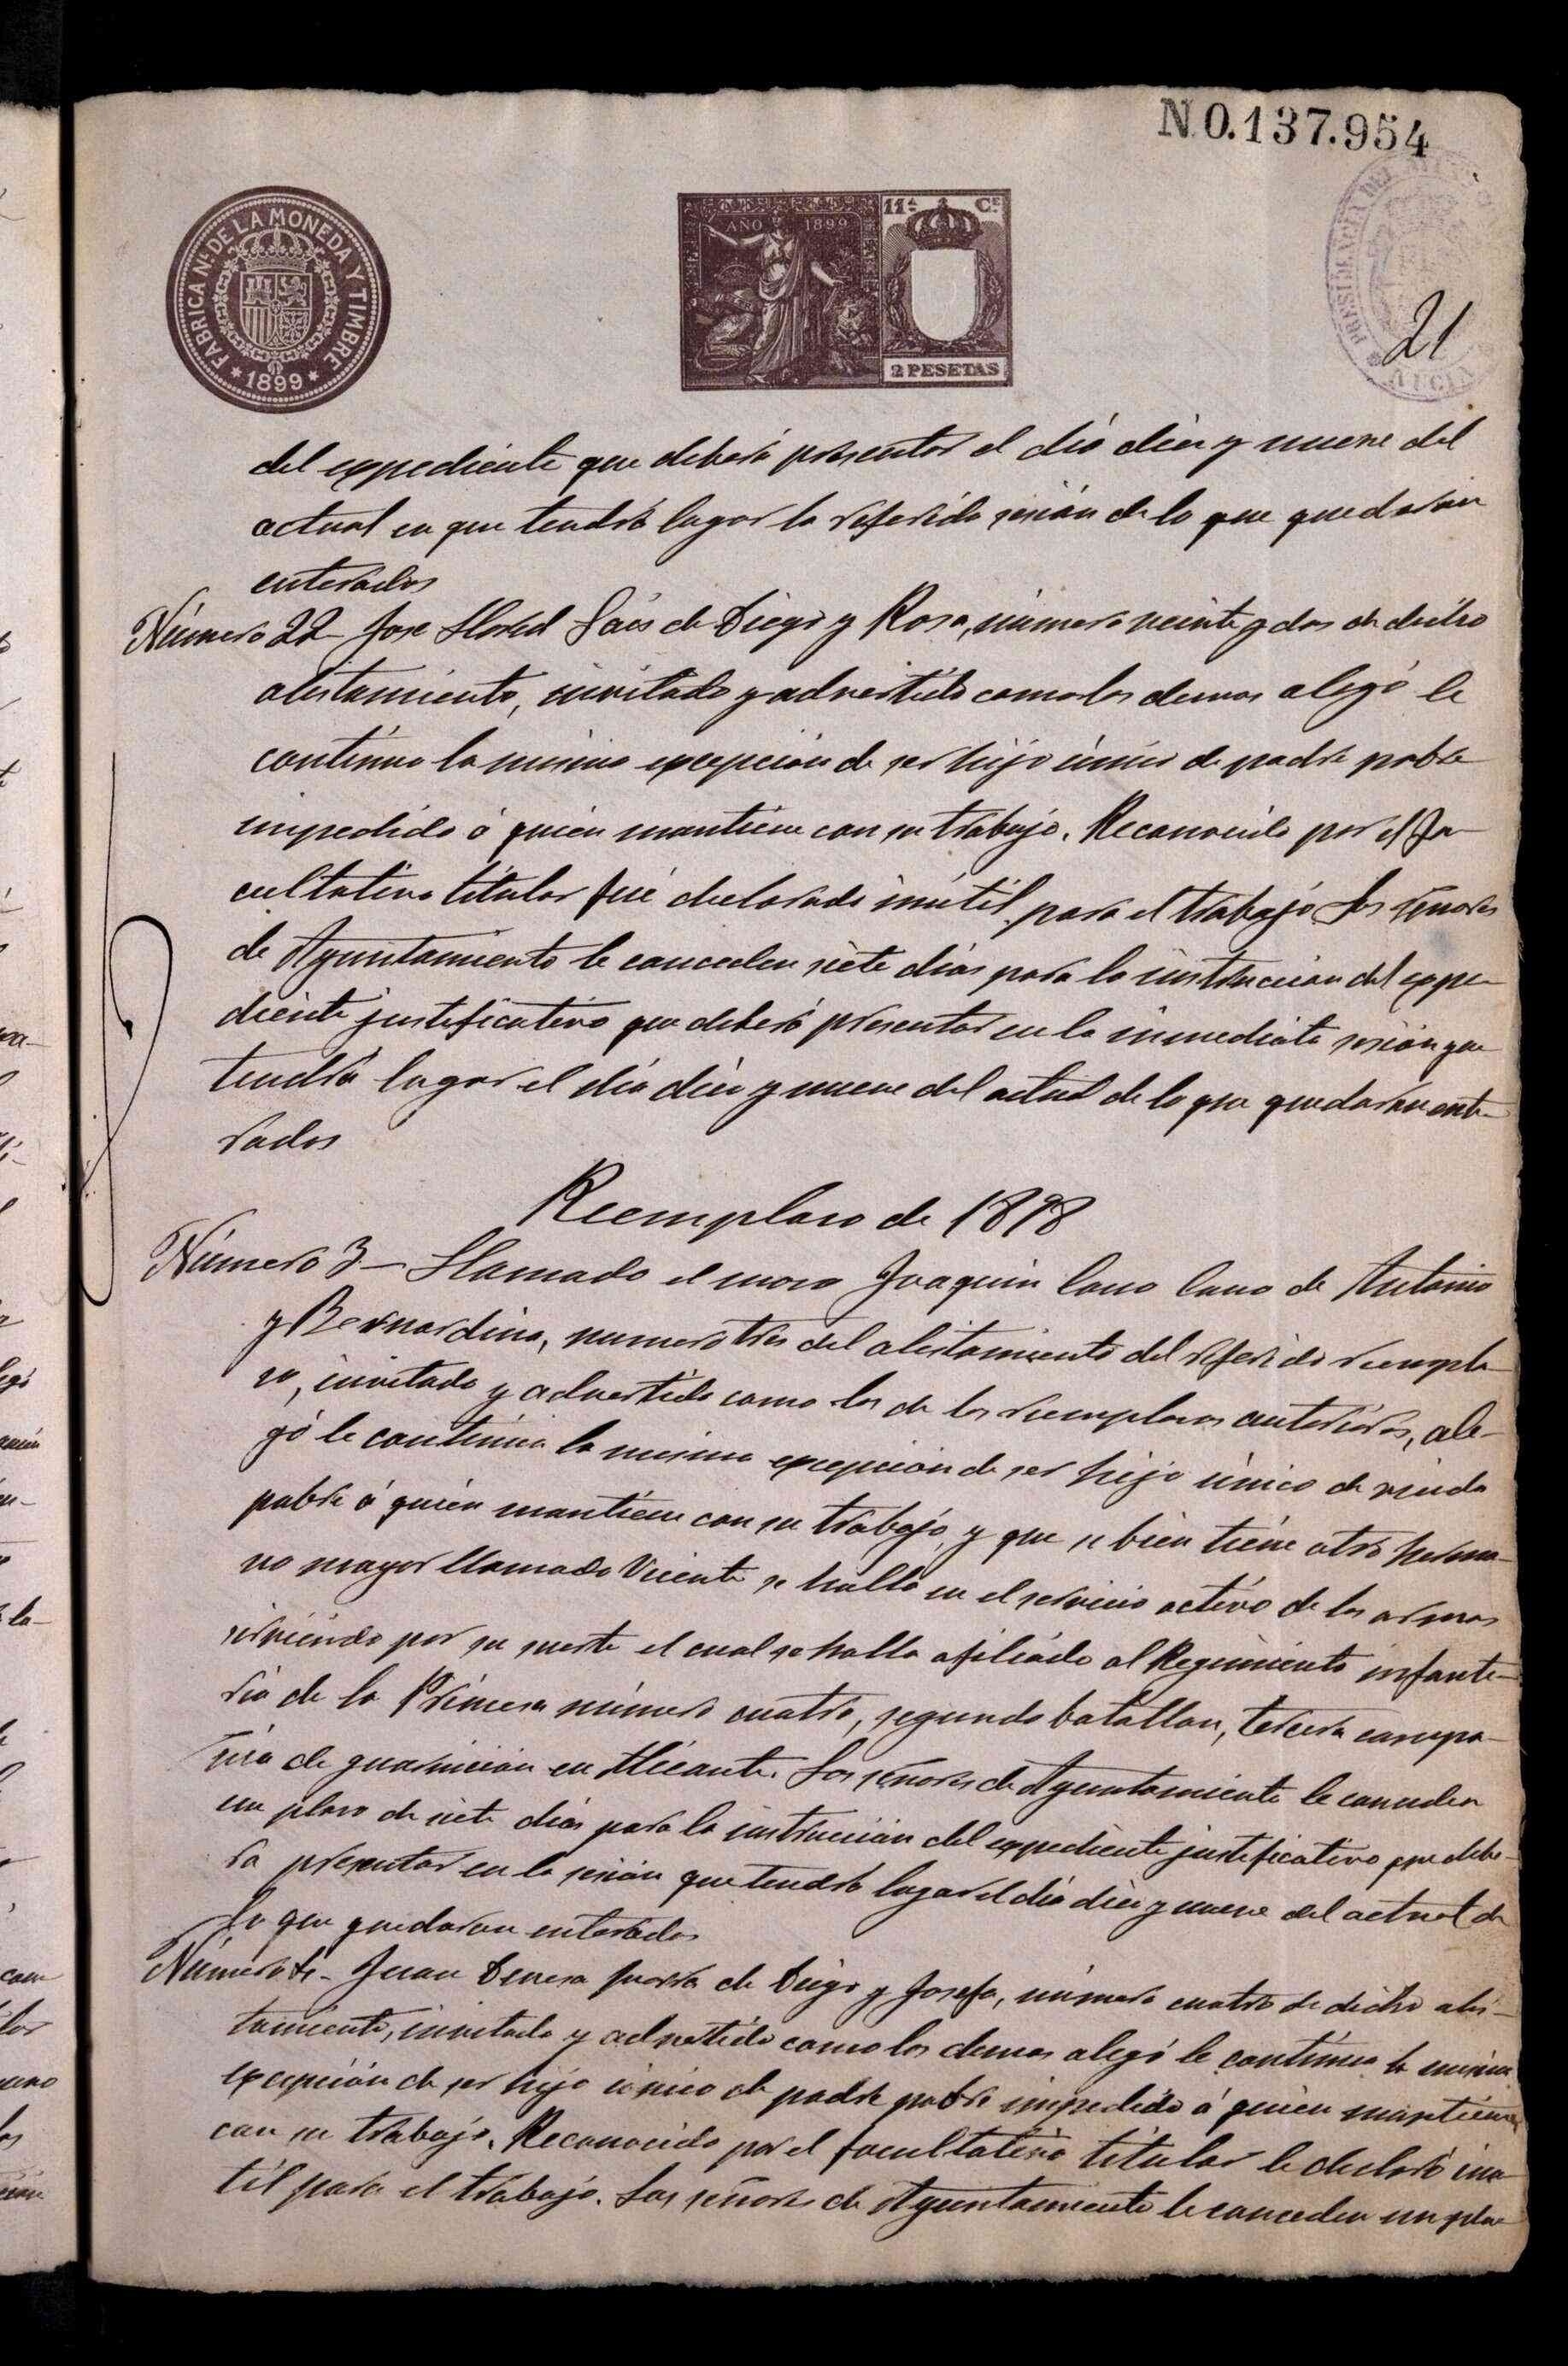 N.0.137.954
FABRICA Nª. DE LA MONEDA Y TIMBRE
* 1899 *
AÑO 1899
11ª Cª
2 PESETAS
PRESIDENCIA DEL
21
del expediente que deberá presentar el dia diez y nueve del
actual en que tendrá lugar la referida sesión de lo que quedaron
enterados
Número 22 - Jose Llored de Diego y Rosa, número veinte y dos de dicho
alistamiento, invitado y advertido como los demas alegó le
continua la misma excepción de ser hijo único de padre pobre
impedido á quien mantiene con su trabajo. Reconocido por el fa-
cultativo titular fué declarado inútil para el trabajo Los señores
de Ayuntamiento le conceden siete dias para la instrucción del expe-
diente justificativo que deberá presentar en la inmediata sesión que
tendrá lugar el dia diez y nueve del actual de lo que quedaron ente-
rados
Reemplazo de 1898
Número 3 - Llamado el mozo Joaquin Cano Cano de Antonio
y Bernardina, numero tres del alistamiento del referido reempla-
zo, invitado y advertido como los de los reemplazos anteriores, ale-
gó le continúa la misma excepción de ser hijo único de viuda
pobre á quien mantiene con su trabajo, y que si bien tiene otro herma-
no mayor llamado Vicente se halla en el servicio activo de las armas
sirviendo por su suerte el cual se halla afiliado al Regimiento infante-
ria de la Princesa número cuatro, segundo batallon, tercera compa-
ñia de guarnicion en Alicante. Los señores de Ayuntamiento le conceden
un plazo de siete dias para la instrucción del expediente justificativo que debe-
rá presentar en la sesión que tendrá lugar el dia diez y nueve del actual de
lo que quedaron enterados
Número 4 - Juan de Diego y Josefa, número cuatro de dicho alis-
tamiento, invitado y advertido como los demas alegó le continua la misma
excepción de ser hijo único de padre pobre impedido á quien mantiene
con su trabajo. Reconocido por el facultativo titular le declaró inu-
til para el trabajo. Los señores de Ayuntamiento le conceden un pla-